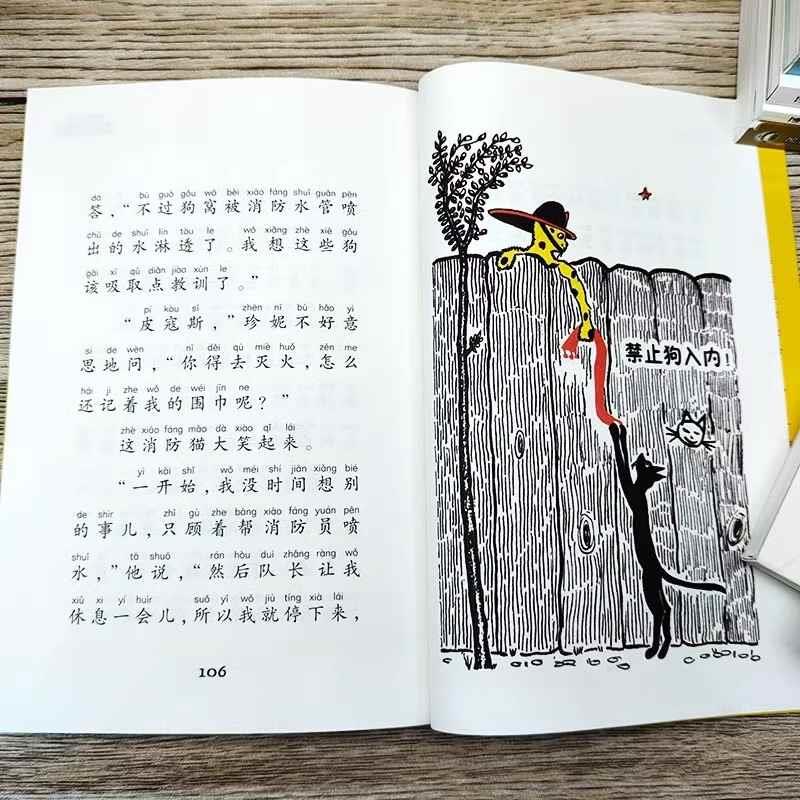 dá bú guò gǒu wō bèi xiāo fáng shuǐ guǎn pēn
答，“不过狗窝被消防水管喷
chū de shuǐ lín tòu le wǒ xiǎng zhè xiē gǒu
出的水淋透了。我想这些狗
gāi xī qǔ diǎn jiào xùn le
该吸取点教训了。”
pí kòu sī zhēn nī bù hǎo yì
“皮寇斯，”珍妮不好意
si de wèn nǐ děi qù miè huǒ zěn me
思地问，“你得去灭火，怎么
hái jì zhe wǒ de wéi jīn ne
还记着我的围巾呢？”
zhè xiāo fáng māo dà xiào qǐ lái
这消防猫大笑起来。
yì kāi shǐ wǒ méi shí jiān xiǎng bié
“一开始，我没时间想别
de shìr zhǐ gù zhe bāng xiāo fáng yuán pēn
的事儿，只顾着帮消防员喷
shuǐ tā shuō rán hòu duì zhǎng ràng wǒ
水，”他说，“然后队长让我
xiū xi yí huìr suǒ yǐ wǒ jiù tíng xià lái
休息一会儿，所以我就停下来，
106
禁止狗入内！